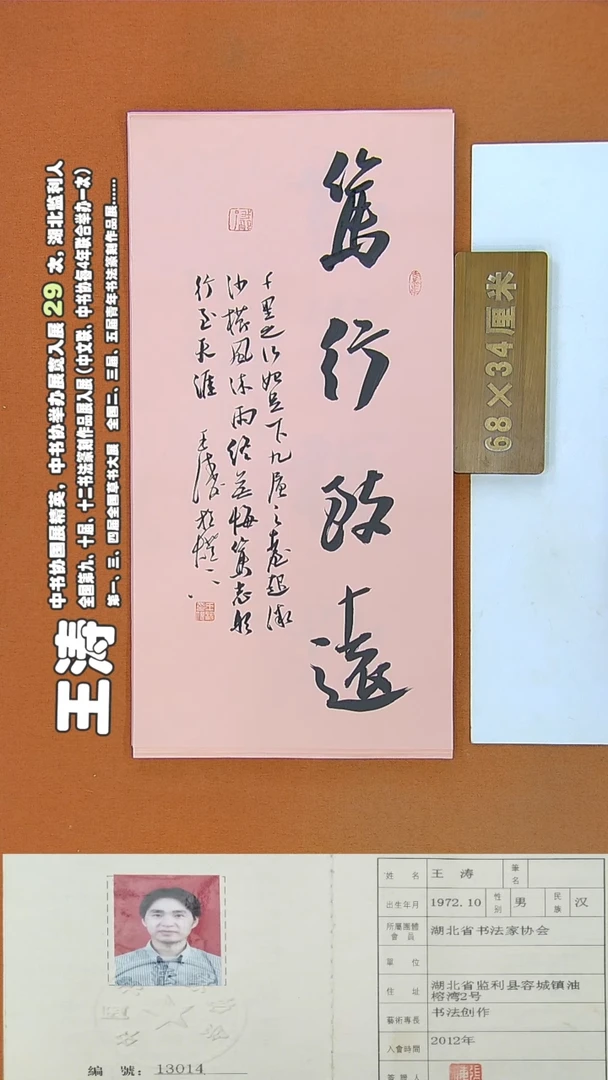 篤行致遠
千里之行始足下九層之臺起微
沙櫛風沐雨終無悔篤志於
行至天涯 王濤
68×34厘米
王涛
中书协国展精英,中书协举办展览入展 29 次,湖北监利人
全国第九、十届、十二书法篆刻作品展入展(中文联、中书协每4年联合举办一次)
第一、三、四届全国扇书法大展 全国二、三届、五届青年书法篆刻作品展......
姓名 王涛 筆名
出生年月 1972.10 性別 男 民族 汉
所屬團體會員 湖北省书法家协会
單位
住址 湖北省监利县容城镇油
榕湾2号
藝術專長 书法创作
入會時間 2012年
簽證人
編號: 13014